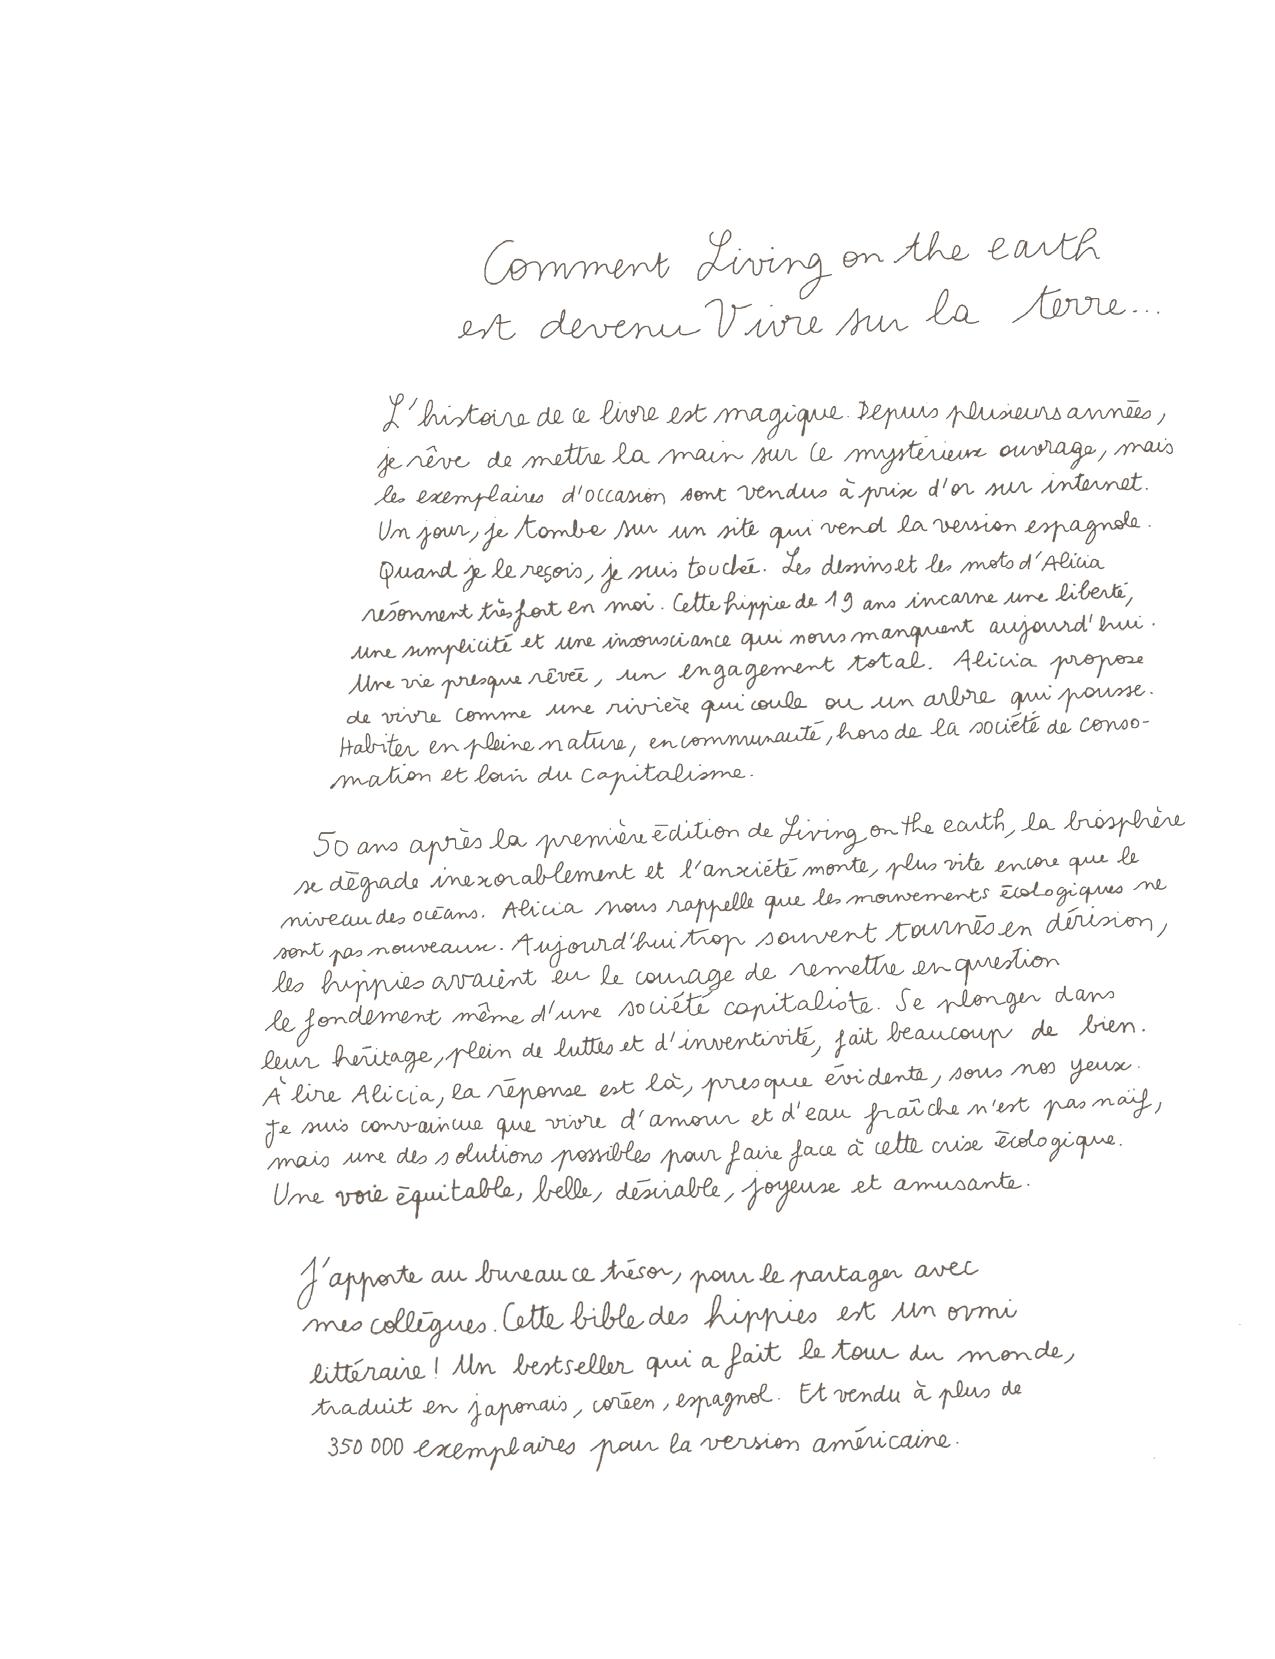 Comment Living on the earth
est devenu Vivre sur la terre...
L'histoire de ce livre est magique. Depuis plusieurs années,
je rêve de mettre la main sur ce mystérieux ouvrage, mais
les exemplaires d'occasion sont vendus à prix d'or sur internet.
Un jour, je tombe sur un site qui vend la version espagnole.
Quand je le reçois, je suis touchée. Les dessins et les mots d'Alicia
résonnent très fort en moi. Cette hippie de 19 ans incarne une liberté,
une simplicité et une insousciance qui nous manquent aujourd'hui.
Une vie presque rêvée, un engagement total. Alicia propose
de vivre comme une rivière qui coule ou un arbre qui pousse.
Habiter en pleine nature, en communauté, hors de la société de conso-
mation et loin du capitalisme.
50 ans après la première édition de Living on the earth, la biosphère
se dégrade inexorablement et l'anxiété monte, plus vite encore que le
niveau des océans. Alicia nous rappelle que les mouvements écologiques ne
sont pas nouveaux. Aujourd'hui trop souvent tournés en dérision,
les hippies avaient eu le courage de remettre en question
le fondement même d'une société capitaliste. Se plonger dans
leur héritage, plein de luttes et d'inventivité, fait beaucoup de bien.
À lire Alicia, la réponse est là, presque évidente, sous nos yeux.
Je suis convaincue que vivre d'amour et d'eau fraîche n'est pas naïf,
mais une des solutions possibles pour faire face à cette crise écologique.
Une voie équitable, belle, désirable, joyeuse et amusante.
J'apporte au bureau ce trésor, pour le partager avec
mes collègues. Cette bible des hippies est un ovni
littéraire! Un bestseller qui a fait le tour du monde,
traduit en japonais, coréen, espagnol. Et vendu à plus de
350 000 exemplaires pour la version américaine.